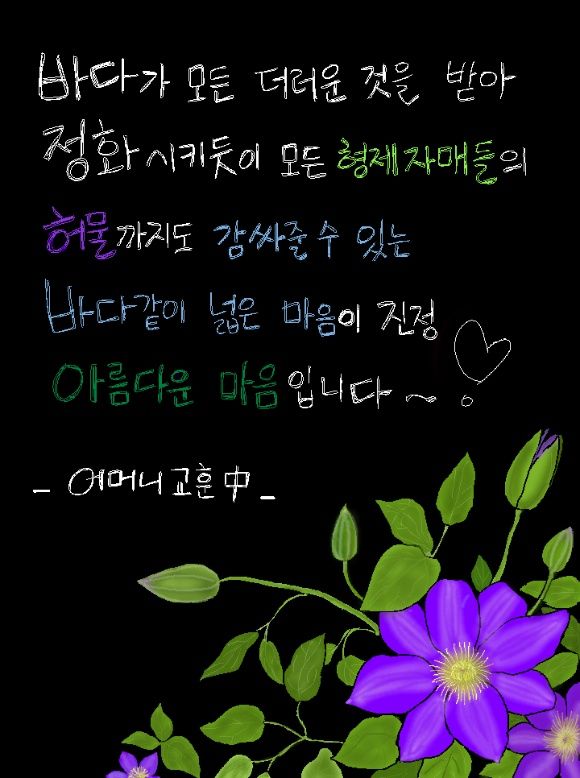 바다가 모든 더러운 것을 받아
정화 시키듯이 모든 형제자매들의
허물까지도 감싸줄 수 있는
바다같이 넓은 마음이 진정
아름다운 마음입니다~
- 어머니교훈 中 -